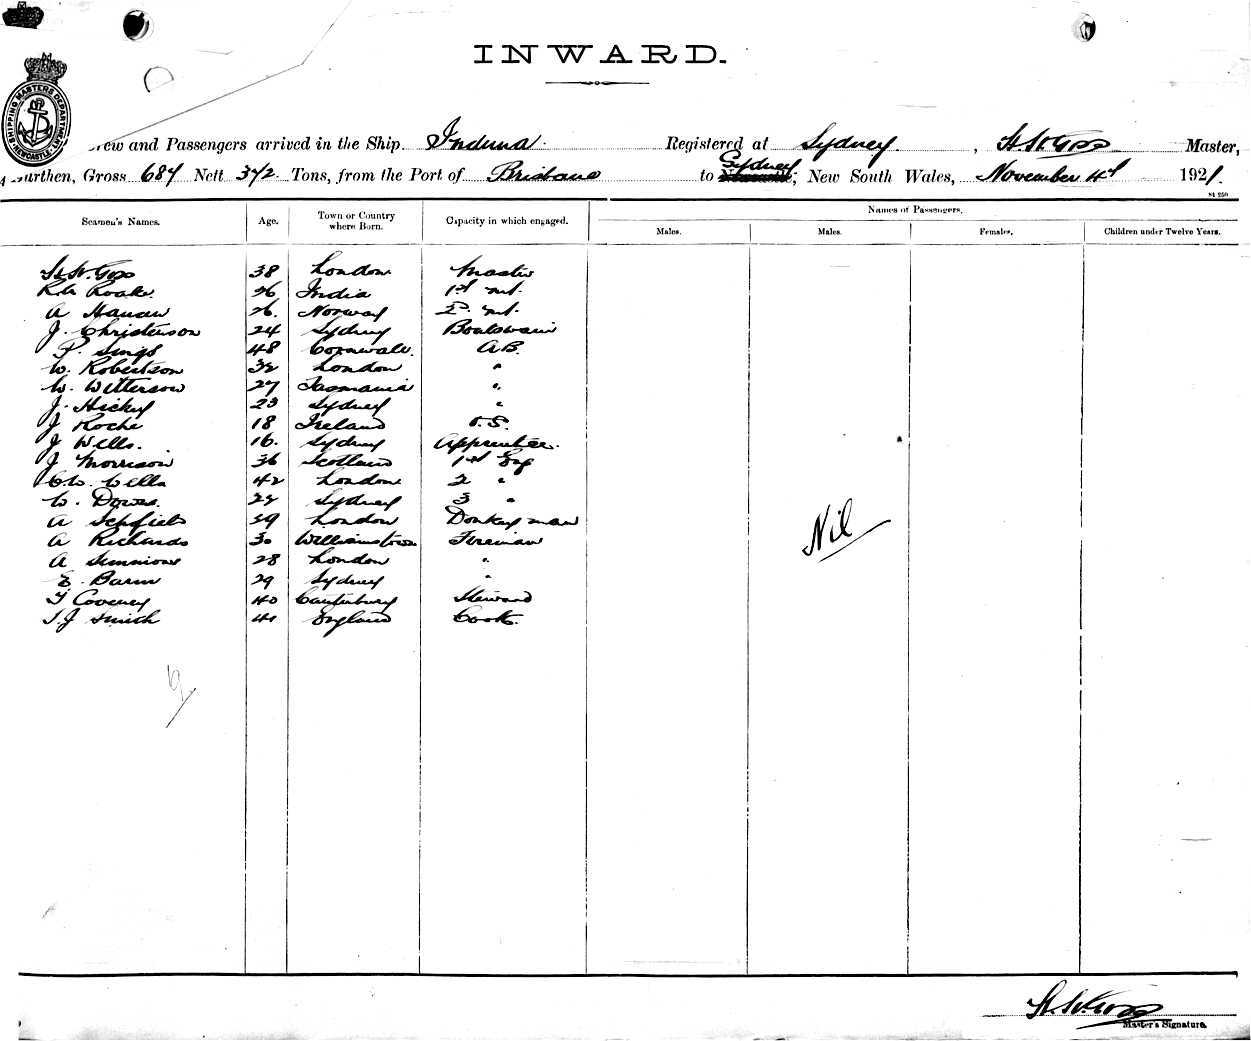 INWARD.
SHIPPING MASTERS DEPARTMENT NEWCASTLE
rew and Passengers arrived in the Ship. Induna Registered at Sydney, Master,
urthen, Gross 684 Nett 342 Tons, from the Port of Brisbane to Sydney, New South Wales, November 4th 1921.
Seamen's Names. Age. Town or Country where Born. Capacity in which engaged. Names of Passengers.
Males. Males. Females. Children under Twelve Years.
38 London Master
26 India 1st mt.
A 26. Norway 2nd mt.
J. Christenson 24 Sydney Boatswain
P. 48 Cornwall. AB.
W. Robertson 32 London "
W. 27 Tasmania "
J. Hickey 23 Sydney "
J Roche 18 Ireland O.S.
J Wells. 16. Sydney Apprentice.
J Morrison 36 Scotland 1st Eng
42 London 2 "
W. 22 Sydney 3 "
A 39 London Donkeyman
A Richards 30 Williamstown Fireman
A Simmons 28 London "
E. 29 Sydney "
Coveney 40 Canterbury Steward
Smith 41 England Cook.
Nil
Master's Signature.